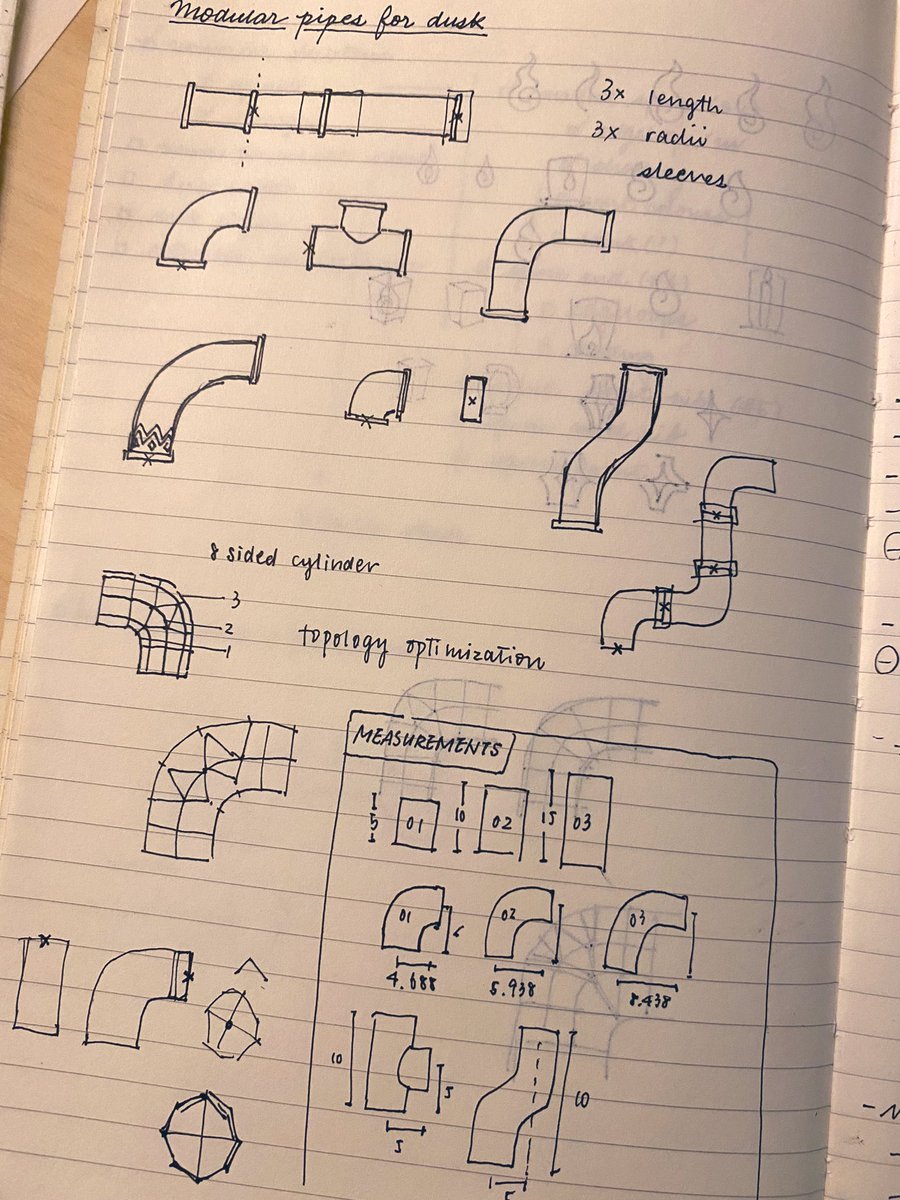 Modular pipes for dusk
3x length
3x radii
sleeves
8 sided cylinder
3
2
1
topology optimization
MEASUREMENTS
5 01 10 02 15 03
01 02 03
4.688 5.938 8.438
10 5 10
5 5